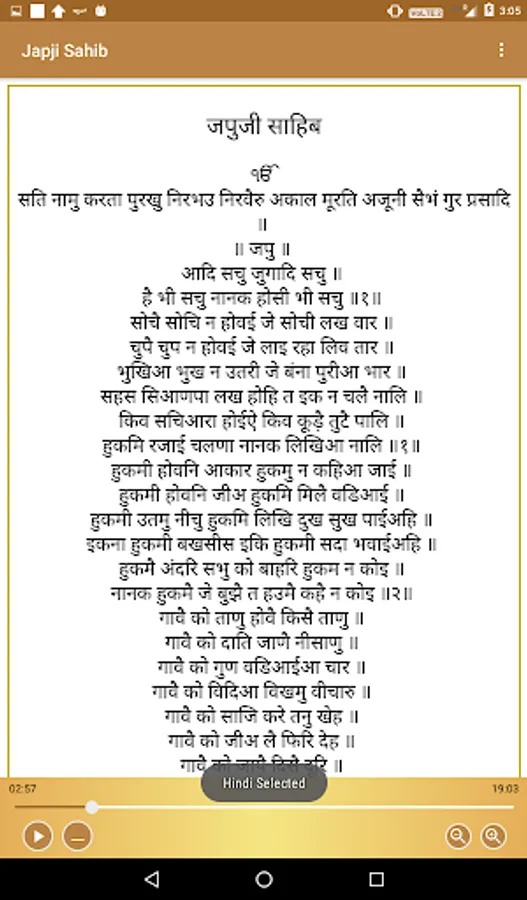 VoLTE 2 3:05
Japji Sahib
जपुजी साहिब
ੴ
सति नामु करता पुरखु निरभउ निरवैरु अकाल मूरति अजूनी सैभं गुर प्रसादि
॥
॥ जपु ॥
आदि सचु जुगादि सचु ॥
है भी सचु नानक होसी भी सचु ॥१॥
सोचै सोचि न होवई जे सोची लख वार ॥
चुपै चुप न होवई जे लाइ रहा लिव तार ॥
भुखिआ भुख न उतरी जे बंना पुरीआ भार ॥
सहस सिआणपा लख होहि त इक न चलै नालि ॥
किव सचिआरा होईऐ किव कूड़ै तुटै पालि ॥
हुकमि रजाई चलणा नानक लिखिआ नालि ॥१॥
हुकमी होवनि आकार हुकमु न कहिआ जाई ॥
हुकमी होवनि जीअ हुकमि मिलै वडिआई ॥
हुकमी उतमु नीचु हुकमि लिखि दुख सुख पाईअहि ॥
इकना हुकमी बखसीस इकि हुकमी सदा भवाईअहि ॥
हुकमै अंदरि सभु को बाहरि हुकम न कोइ ॥
नानक हुकमै जे बुझै त हउमै कहै न कोइ ॥२॥
गावै को ताणु होवै किसै ताणु ॥
गावै को दाति जाणै नीसाणु ॥
गावै को गुण वडिआईआ चार ॥
गावै को विदिआ विखमु वीचारु ॥
गावै को साजि करे तनु खेह ॥
गावै को जीअ लै फिरि देह ॥
गावै को जापै दिसै दूरि ॥
Hindi Selected
02:57 19:03